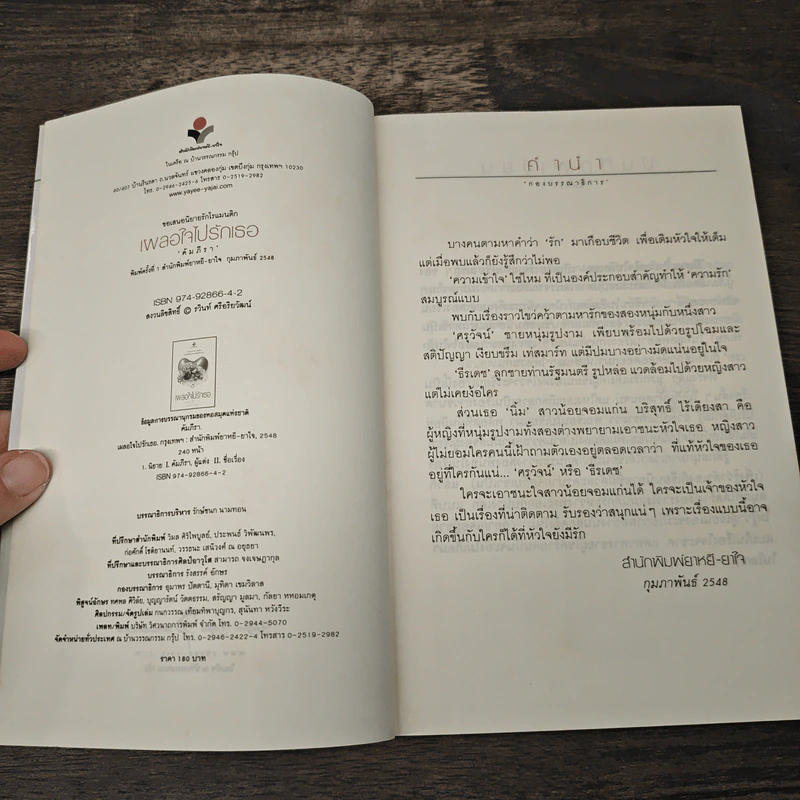 สำนักพิมพ์ยาหยี-ยาใจ
ในเครือ ณ บ้านวรรณกรรม กรุ๊ป
40/407 บ้านรินทดา ถ.นวลจันทร์ แขวงคลองกุ่ม เขตบึงกุ่ม กรุงเทพฯ 10230
โทร. 0-2946-2425-6 โทรสาร 0-2519-2982
www.yayee-yajai.com
ขอเสนอนิยายรักโรแมนติก
เผลอใจไปรักเธอ
'คัมภีรา'
พิมพ์ครั้งที่ 1 สำนักพิมพ์ยาหยี-ยาใจ กุมภาพันธ์ 2548
ISBN 974-92866-4-2
สงวนลิขสิทธิ์ © รวินท์ ศรีอริยวัฒน์
เผลอใจไปรักเธอ
ข้อมูลการบรรณานุกรมของหอสมุดแห่งชาติ
คัมภีรา.
เผลอใจไปรักเธอ. กรุงเทพฯ : สำนักพิมพ์ยาหยี-ยาใจ, 2548
240 หน้า
1. นิยาย I. คัมภีรา, ผู้แต่ง II. ชื่อเรื่อง
ISBN 974-92866-4-2
บรรณาธิการบริหาร รักษ์ชนก นามทอน
ที่ปรึกษาสำนักพิมพ์ วิมล ศิริไพบูลย์, ประพนธ์ วิพัฒนพร,
ก่อศักดิ์ โชติยานนท์, วรรธนะ เสนีวงศ์ ณ อยุธยา
ที่ปรึกษาและบรรณาธิการศิลป์อาวุโส สามารถ จงเจษฎากุล
บรรณาธิการ รังสรรค์ อักษร
กองบรรณาธิการ อุมาพร ปัตตานี, มุทิตา เขมวิลาส
พิสูจน์อักษร ทศพล ศิริลัย, บุญญารัตน์ วัตตธรรม, สรัญญา มูลมา, กัลยา หหอมเกตุ
ศิลปกรรม/จัดรูปเล่ม กนกวรรณ เทียมทิพาบุญกร, สุนันทา หวังวีระ
เพลท/พิมพ์ บริษัท วิศวนาถการพิมพ์ จำกัด โทร. 0-2944-5070
จัดจำหน่ายทั่วประเทศ ณ บ้านวรรณกรรม กรุ๊ป โทร. 0-2946-2422-4 โทรสาร 0-2519-2982
ราคา 180 บาท
คำนำ
'กองบรรณาธิการ'
บางคนตามหาคำว่า 'รัก' มาเกือบชีวิต เพื่อเติมหัวใจให้เต็ม
แต่เมื่อพบแล้วก็ยังรู้สึกว่าไม่พอ
'ความเข้าใจ' ใช่ไหม ที่เป็นองค์ประกอบสำคัญทำให้ 'ความรัก'
สมบูรณ์แบบ
พบกับเรื่องราวไขว่คว้าตามหารักของสองหนุ่มกับหนึ่งสาว
'ศรุวัจน์' ชายหนุ่มรูปงาม เพียบพร้อมไปด้วยรูปโฉมและ
สติปัญญา เงียบขรึม เท่สมาร์ท แต่มีปมบางอย่างมัดแน่นอยู่ในใจ
'ธีรเดช' ลูกชายท่านรัฐมนตรี รูปหล่อ แวดล้อมไปด้วยหญิงสาว
แต่ไม่เคยง้อใคร
ส่วนเธอ 'นิ้ม' สาวน้อยจอมแก่น บริสุทธิ์ ไร้เดียงสา คือ
ผู้หญิงที่หนุ่มรูปงามทั้งสองต่างพยายามเอาชนะหัวใจเธอ หญิงสาว
ผู้ไม่ยอมใครคนนี้เฝ้าถามตัวเองอยู่ตลอดเวลาว่า ที่แท้หัวใจของเธอ
อยู่ที่ใครกันแน่... 'ศรุวัจน์' หรือ 'ธีรเดช'
ใครจะเอาชนะใจสาวน้อยจอมแก่นได้ ใครจะเป็นเจ้าของหัวใจ
เธอ เป็นเรื่องที่น่าติดตาม รับรองว่าสนุกแน่ๆ เพราะเรื่องแบบนี้อาจ
เกิดขึ้นกับใครก็ได้ที่หัวใจยังมีรัก
สำนักพิมพ์ยาหยี-ยาใจ
กุมภาพันธ์ 2548